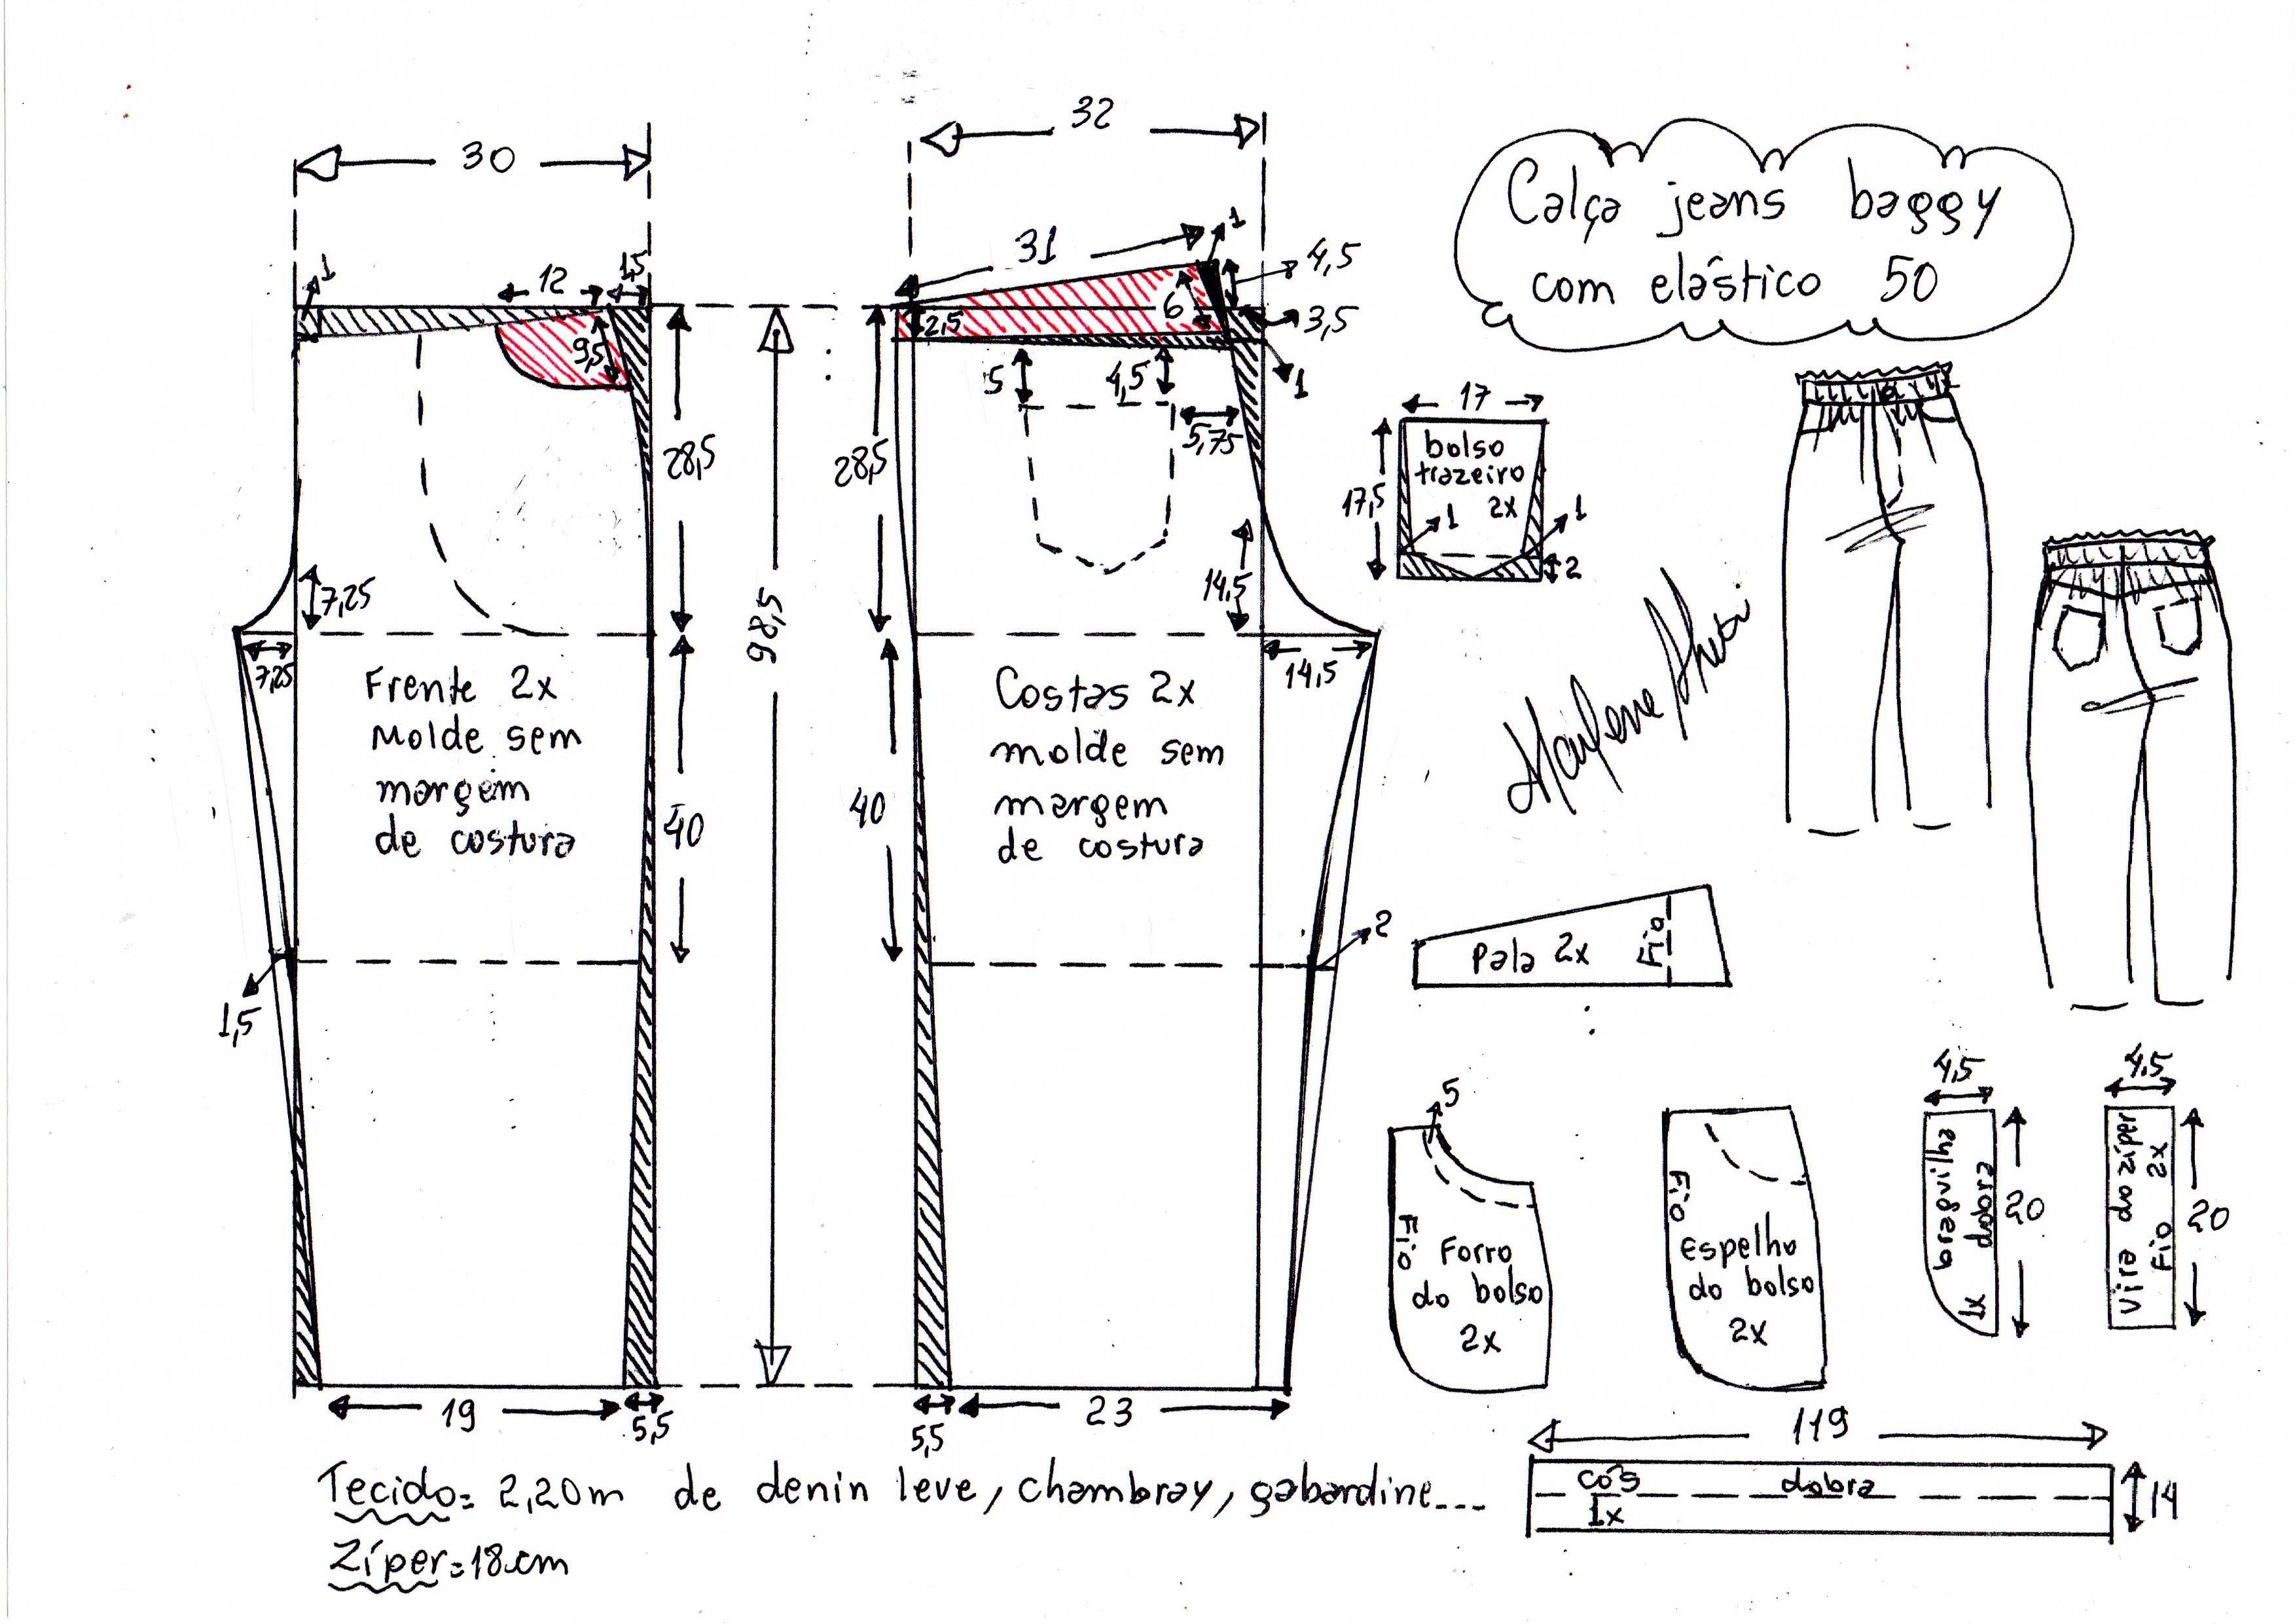 Calça jeans baggy
com elástico 50
30
1
12
1,5
9,5
28,5
7,25
7,25
Frente 2x
Molde sem
margem
de costura
40
1,5
19
5,5
98,5
32
31
1
4,5
6
2,5
3,5
1
5
4,5
5,75
28,5
14,5
14,5
Costas 2x
molde sem
margem
de costura
40
2
5,5
23
17
bolso
trazeiro
2x
17,5
1
1
2
Pala 2x
Fio
5
Fio
Forro
do bolso
2x
Fio
Espelho
do bolso
2x
4,5
braguilha
1x dobra
20
4,5
Vira do zíper
Fio 2x
20
119
cós dobra
1x
14
Tecido= 2,20m de denin leve, chambray, gabardine...
Zíper=18cm